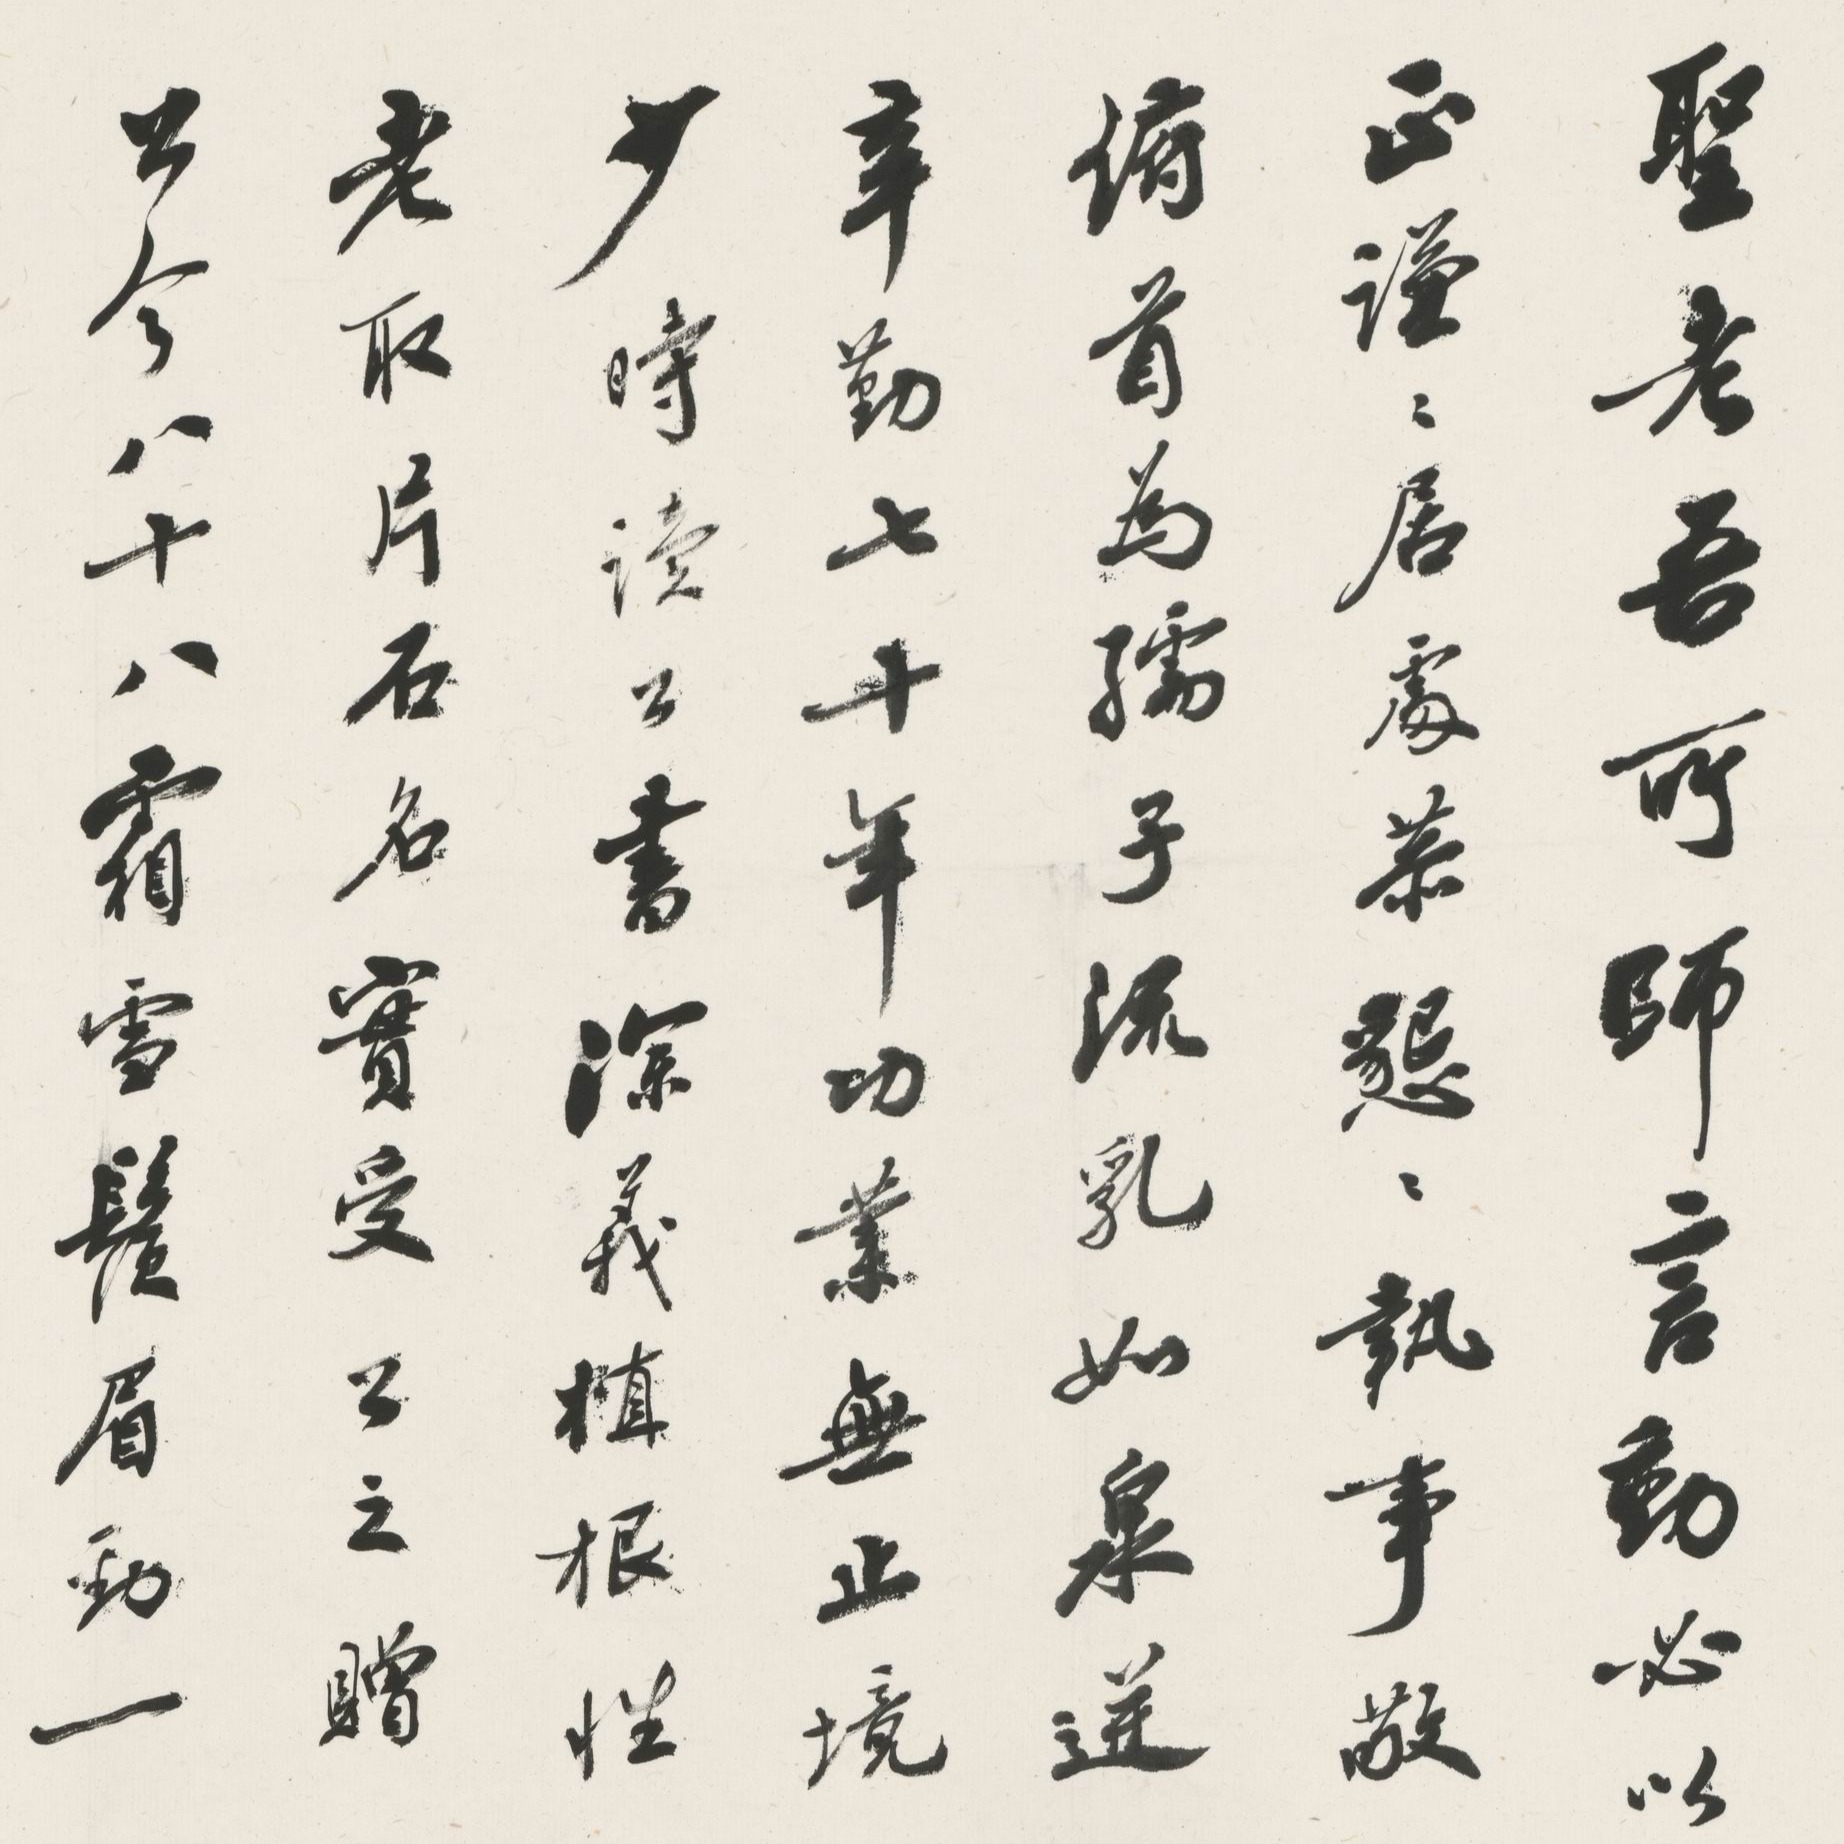 聖老吾所師言動必以
正謙〻居處恭懇〻執事敬
俯首為孺子流乳如泉迸
辛勤七十年功業無止境
少時讀公書深義植根性
老取片石名實受公之贈
公今八十八霜雪鬢眉勁一